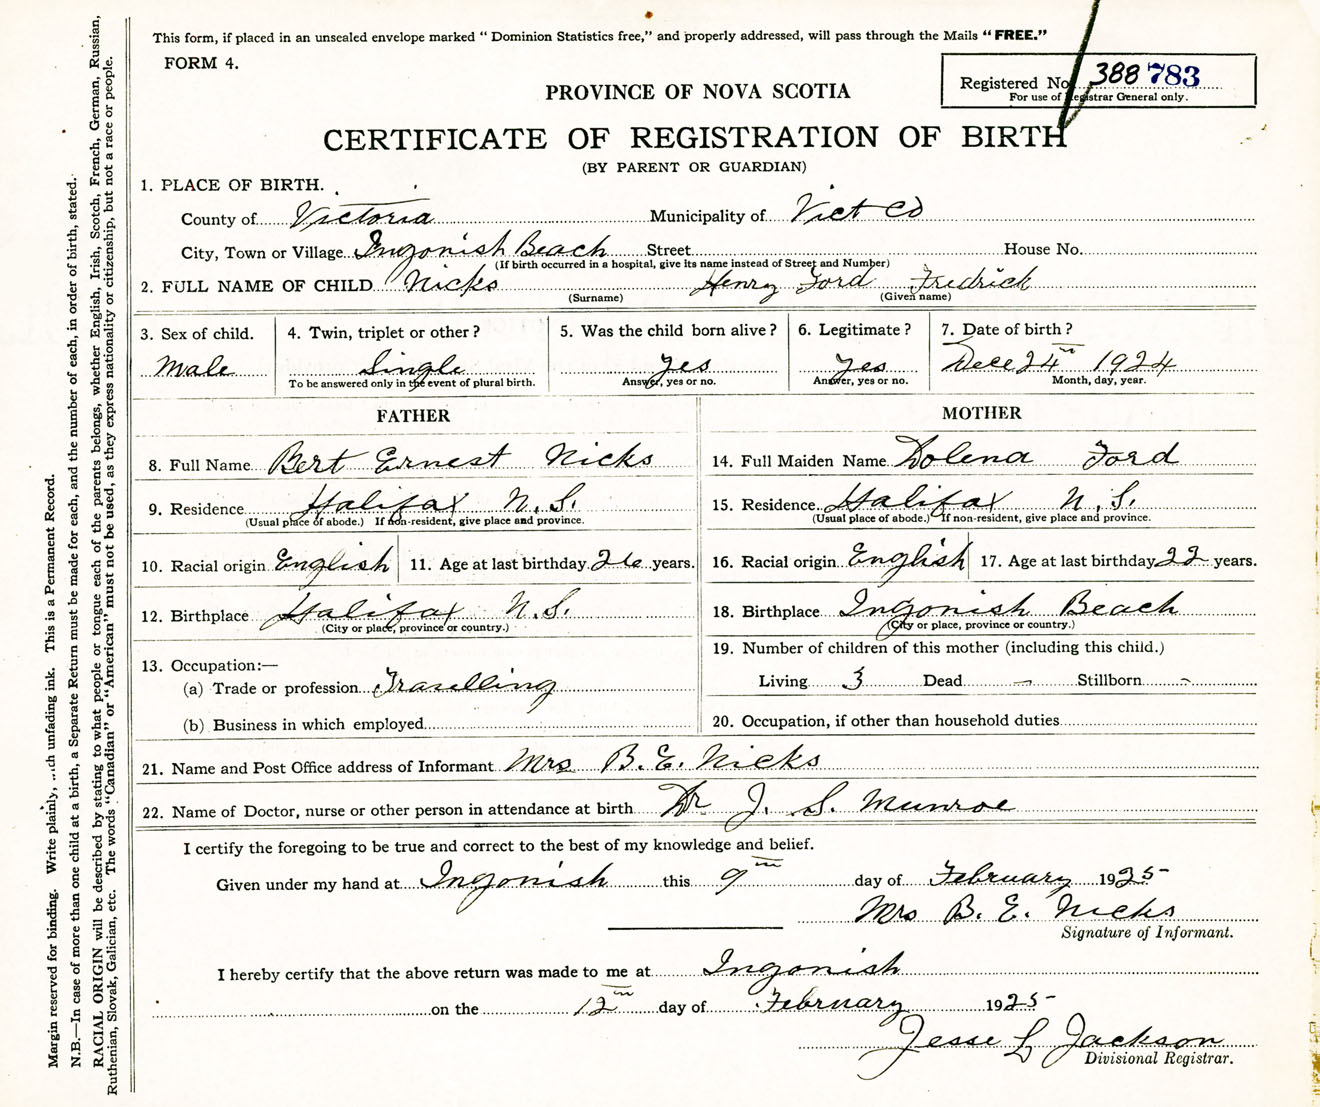 This form, if placed in an unsealed envelope marked "Dominion Statistics free," and properly addressed, will pass through the Mails "FREE."
FORM 4.
Registered No. 388 783
For use of Registrar General only.
PROVINCE OF NOVA SCOTIA
CERTIFICATE OF REGISTRATION OF BIRTH
(BY PARENT OR GUARDIAN)
1. PLACE OF BIRTH.
County of Victoria Municipality of Vict Co
City, Town or Village Ingonish Beach Street House No.
(If birth occurred in a hospital, give its name instead of Street and Number)
2. FULL NAME OF CHILD Nicks Henry Ford Fredrick
(Surname) (Given name)
3. Sex of child. 4. Twin, triplet or other? 5. Was the child born alive? 6. Legitimate? 7. Date of birth?
Male Single Yes Yes Dec 24th 1924
To be answered only in the event of plural birth. Answer, yes or no. Answer, yes or no. Month, day, year.
FATHER MOTHER
8. Full Name Bert Ernest Nicks 14. Full Maiden Name Dolena Ford
9. Residence Halifax N.S. 15. Residence Halifax N.S.
(Usual place of abode.) If non-resident, give place and province. (Usual place of abode.) If non-resident, give place and province.
10. Racial origin English 11. Age at last birthday 26 years. 16. Racial origin English 17. Age at last birthday 22 years.
12. Birthplace Halifax N.S. 18. Birthplace Ingonish Beach
(City or place, province or country.) (City or place, province or country.)
19. Number of children of this mother (including this child.)
13. Occupation:—
(a) Trade or profession Travelling Living 3 Dead – Stillborn -
(b) Business in which employed 20. Occupation, if other than household duties
21. Name and Post Office address of Informant Mrs B. E. Nicks
22. Name of Doctor, nurse or other person in attendance at birth Dr J. S. Munroe
I certify the foregoing to be true and correct to the best of my knowledge and belief.
Given under my hand at Ingonish this 9th day of February 1925
Mrs B. E. Nicks
Signature of Informant.
I hereby certify that the above return was made to me at Ingonish
on the 12th day of February 1925
Jesse L Jackson
Divisional Registrar.
Margin reserved for binding. Write plainly, ...ch unfading ink. This is a Permanent Record.
N.B.—In case of more than one child at a birth, a Separate Return must be made for each, and the number of each, in order of birth, stated.
RACIAL ORIGIN will be described by stating to what people or tongue each of the parents belongs, whether English, Irish, Scotch, French, German, Russian,
Ruthenian, Slovak, Galician, etc. The words "Canadian" or "American" must not be used, as they express nationality or citizenship, but not a race or people.